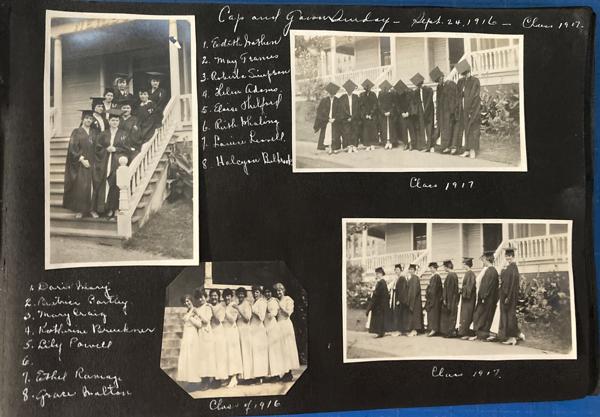 Cap and Gown Sunday - Sept. 24, 1916 - Class 1917.
1. Edith
2. May Francis
3. Roberta Simpson
4. Helen Adams
5. Eloise Shelford
6. Ruth Whaling
7. Laurie
8. Halcyon
Class 1917
1. Doris Mary
2. Beatrice Cortley
3. Mary Craig
4. Katherine Brueckner
5. Lily Powell
6.
7. Ethel Ramage
8. Grace Walton
Class of 1916
Class 1917.